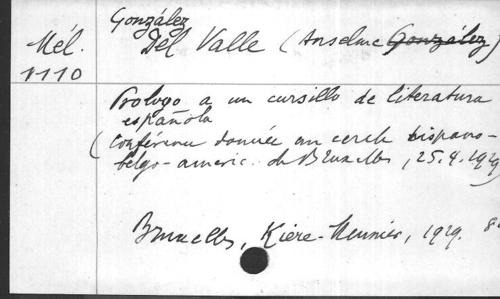 González
Mél.
Del Valle (Anselme González)
1110
Prologo a un cursillo de literatura
española
(Conférence donnée au cercle hispano-
belgo-americ. de Bruxelles, 25.4.1929)
Bruxelles, Kiere-Meunier, 1929. 8°